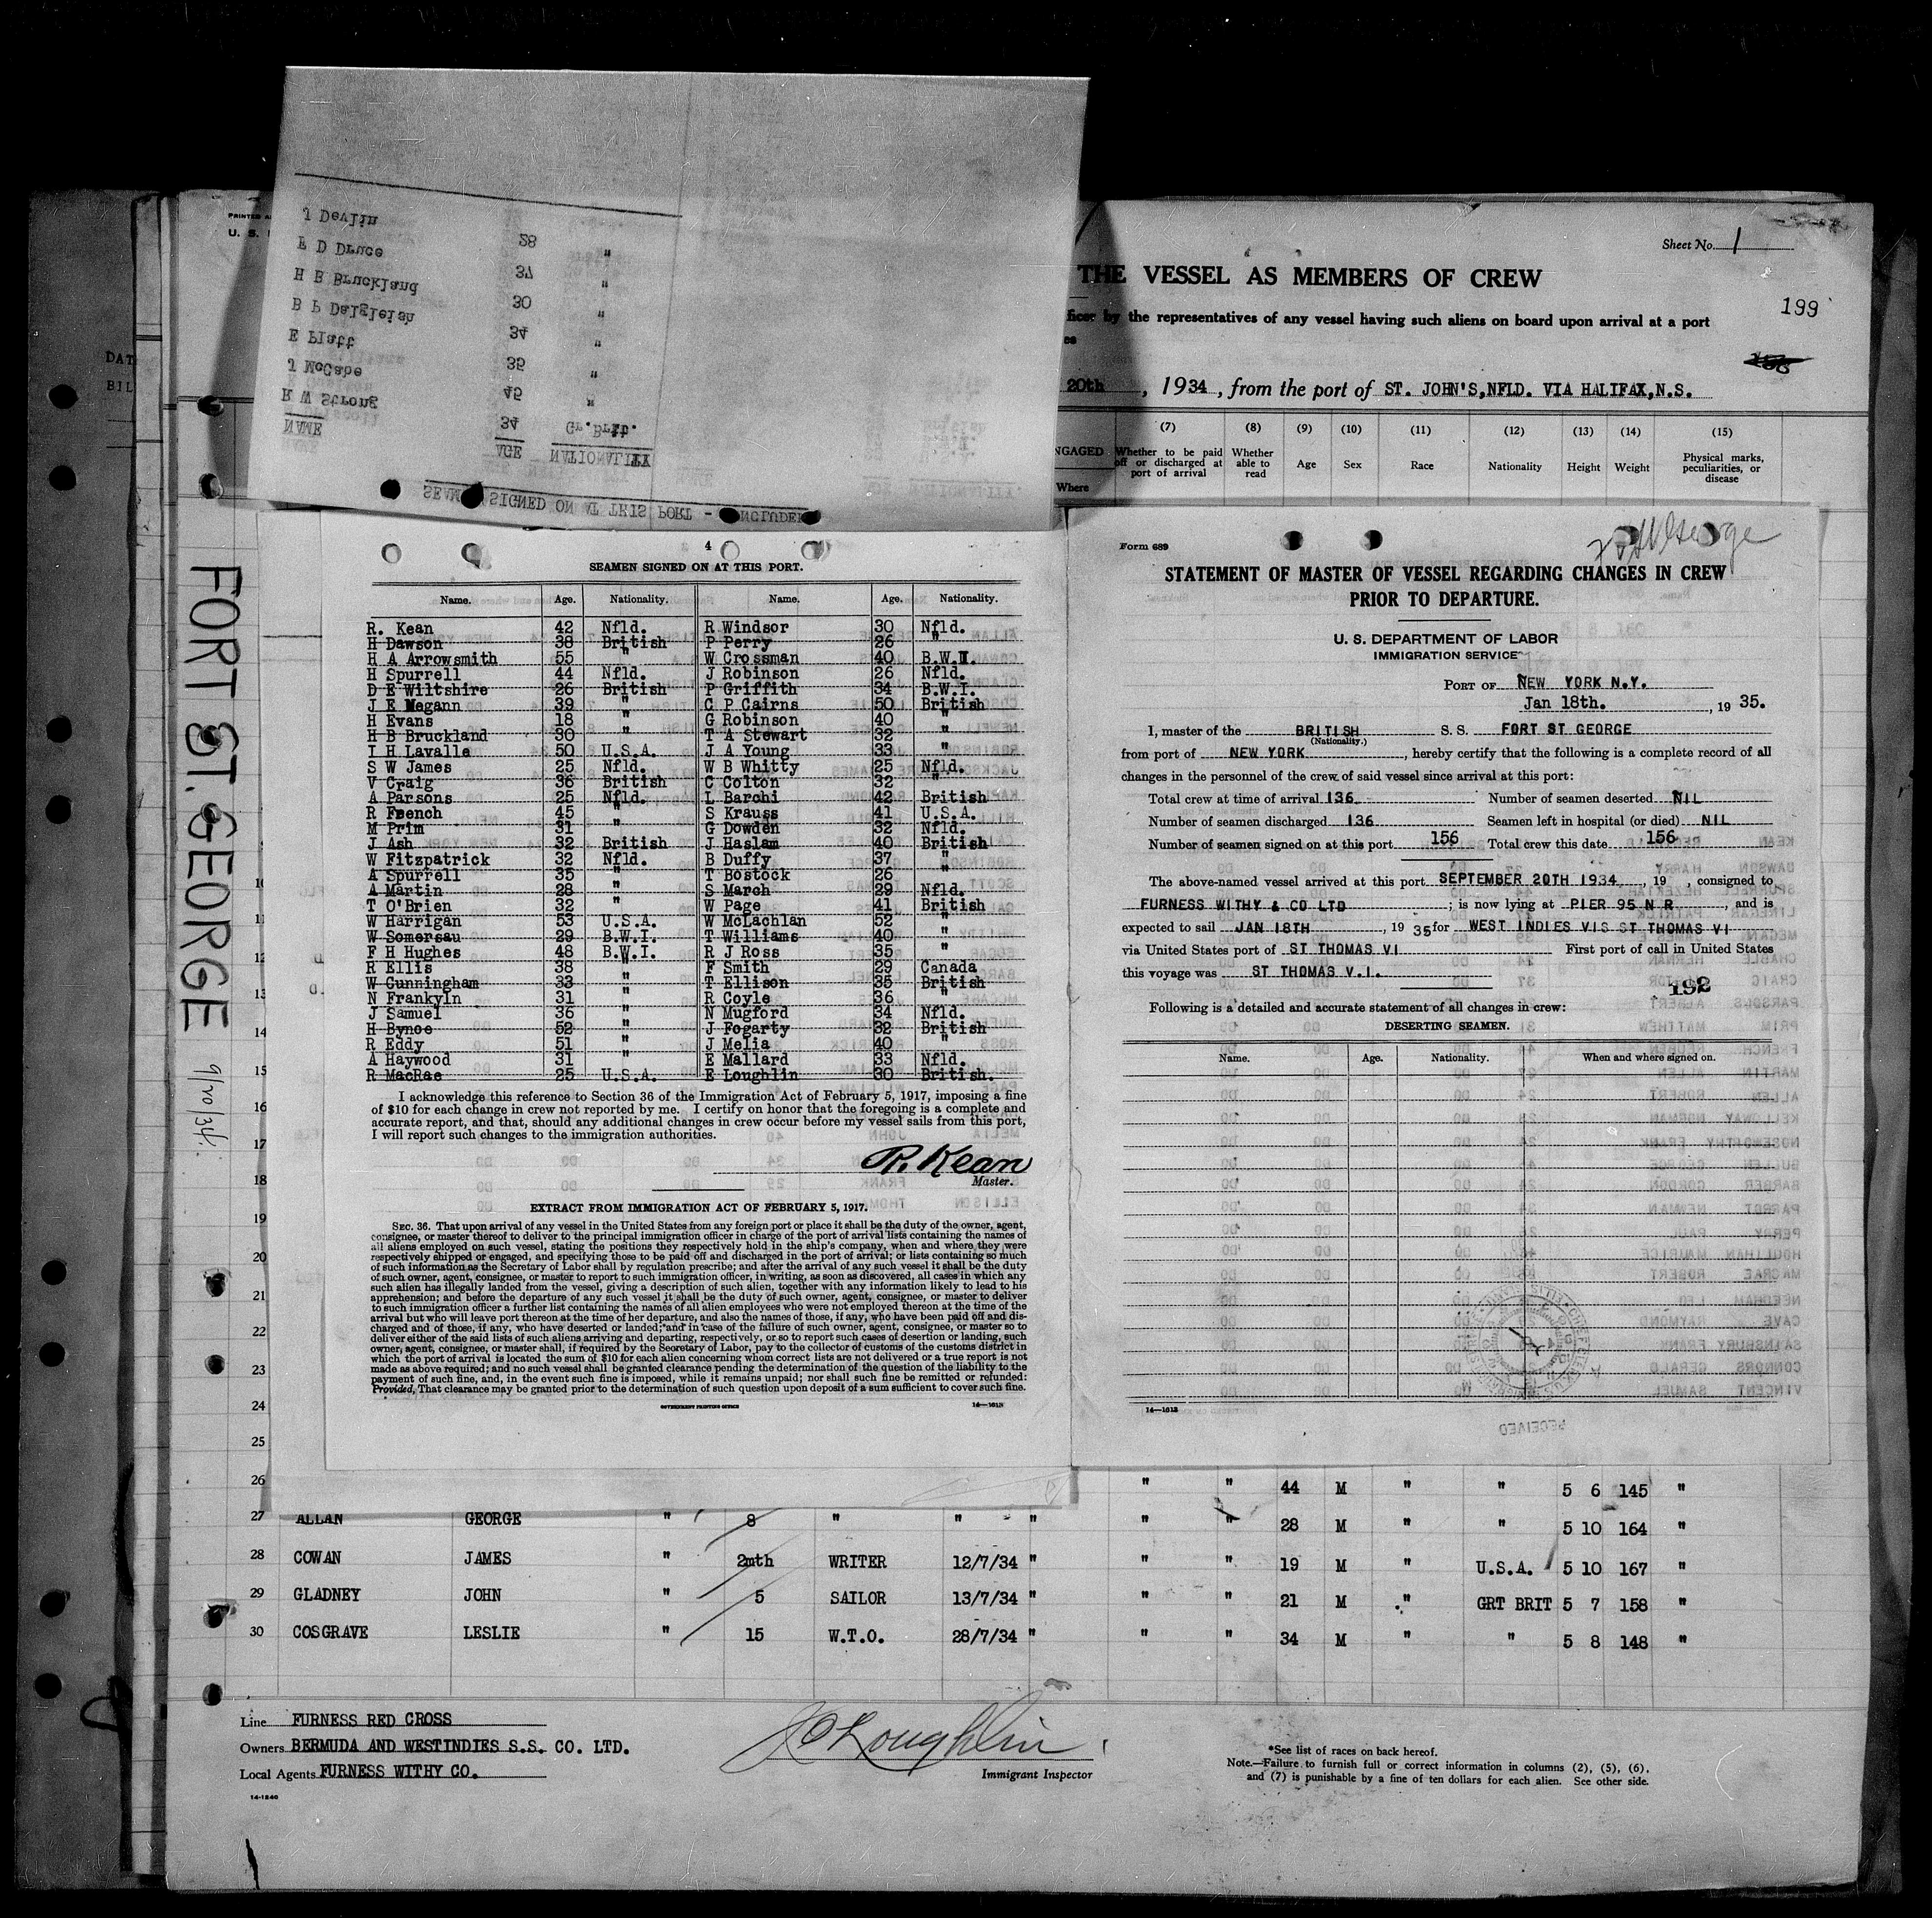 SEAMEN SIGNED ON AT THIS PORT -
NAME AGE NATIONALITY
K W Strong 34 Gr. Brit.
J McCabe 45 "
E Platt 35 "
B P Dalgleish 34 "
H B Bruckland 30 "
E D Druce 37 "
J Devlin 28 "
PRINTED
U. S.
DAT
BIL
Sheet No. 1
THE VESSEL AS MEMBERS OF CREW
199
by the representatives of any vessel having such aliens on board upon arrival at a port
20th, 1934, from the port of ST. JOHN'S,NFLD. VIA HALIFAX,N.S.
(7) (8) (9) (10) (11) (12) (13) (14) (15)
ENGAGED Whether to be paid off or discharged at port of arrival Whether able to read Age Sex Race Nationality Height Weight Physical marks, peculiarities, or disease
Where
FORT ST. GEORGE 9/20/34.
4
SEAMEN SIGNED ON AT THIS PORT.
Name. Age. Nationality. Name. Age. Nationality.
R. Kean 42 Nfld. R Windsor 30 Nfld.
H Dawson 38 British P Perry 26 "
H A Arrowsmith 55 " W Crossman 40 B.W.I.
H Spurrell 44 Nfld. J Robinson 26 Nfld.
D E Wiltshire 26 British P Griffith 34 B.W.I.
J E Megann 39 " C P Cairns 50 British
H Evans 18 " G Robinson 40 "
H B Bruckland 30 " T A Stewart 32 "
I H Lavalle 50 U.S.A. J A Young 33 "
S W James 25 Nfld. W B Whitty 25 Nfld.
V Craig 36 British C Colton 32 "
A Parsons 25 Nfld. L Barchi 42 British
R French 45 " S Krauss 41 U.S.A.
M Prim 31 " G Dowden 32 Nfld.
J Ash 32 British J Haslam 40 British
W Fitzpatrick 32 Nfld. B Duffy 37 "
A Spurrell 35 " T Bostock 26 "
A Martin 28 " S March 29 Nfld.
T O'Brien 32 " W Page 41 British
W Harrigan 53 U.S.A. W McLachlan 52 "
W Somersau 29 B.W.I. T Williams 40 "
F H Hughes 48 B.W.I. R J Ross 35 "
R Ellis 38 " F Smith 29 Canada
W Cunningham 33 " T Ellison 35 British
N Frankyln 31 " R Coyle 36 "
J Samuel 36 " N Mugford 34 Nfld.
H Bynoe 52 " J Fogarty 32 British
R Eddy 51 " J Melia 40 "
A Haywood 31 " E Mallard 33 Nfld.
R MacRae 25 U.S.A. E Loughlin 30 British.
I acknowledge this reference to Section 36 of the Immigration Act of February 5, 1917, imposing a fine
of $10 for each change in crew not reported by me. I certify on honor that the foregoing is a complete and
accurate report, and that, should any additional changes in crew occur before my vessel sails from this port,
I will report such changes to the immigration authorities.
R. Kean
Master.
EXTRACT FROM IMMIGRATION ACT OF FEBRUARY 5, 1917.
SEC. 36. That upon arrival of any vessel in the United States from any foreign port or place it shall be the duty of the owner, agent,
consignee, or master thereof to deliver to the principal immigration officer in charge of the port of arrival lists containing the names of
all aliens employed on such vessel, stating the positions they respectively hold in the ship's company, when and where they were
respectively shipped or engaged, and specifying those to be paid off and discharged in the port of arrival; or lists containing so much
of such information as the Secretary of Labor shall by regulation prescribe; and after the arrival of any such vessel it shall be the duty
of such owner, agent, consignee, or master to report to such immigration officer, in writing, as soon as discovered, all cases in which any
such alien has illegally landed from the vessel, giving a description of such alien, together with any information likely to lead to his
apprehension; and before the departure of any such vessel it shall be the duty of such owner, agent, consignee, or master to deliver
to such immigration officer a further list containing the names of all alien employees who were not employed thereon at the time of the
arrival but who will leave port thereon at the time of her departure, and also the names of those, if any, who have been paid off and dis-
charged and of those, if any, who have deserted or landed; and in case of the failure of such owner, agent, consignee, or master so to
deliver either of the said lists of such aliens arriving and departing, respectively, or so to report such cases of desertion or landing, such
owner, agent, consignee, or master shall, if required by the Secretary of Labor, pay to the collector of customs of the customs district in
which the port of arrival is located the sum of $10 for each alien concerning whom correct lists are not delivered or a true report is not
made as above required; and no such vessel shall be granted clearance pending the determination of the question of the liability to the
payment of such fine, and, in the event such fine is imposed, while it remains unpaid; nor shall such fine be remitted or refunded:
Provided, That clearance may be granted prior to the determination of such question upon deposit of a sum sufficient to cover such fine.
GOVERNMENT PRINTING OFFICE 14—1613
Form 689
Ft St George
STATEMENT OF MASTER OF VESSEL REGARDING CHANGES IN CREW
PRIOR TO DEPARTURE.
U. S. DEPARTMENT OF LABOR
IMMIGRATION SERVICE
PORT OF NEW YORK N.Y.
Jan 18th., 19 35.
I, master of the BRITISH S. S. FORT ST GEORGE
(Nationality.)
from port of NEW YORK, hereby certify that the following is a complete record of all
changes in the personnel of the crew of said vessel since arrival at this port:
Total crew at time of arrival 136 Number of seamen deserted NIL
Number of seamen discharged 136 Seamen left in hospital (or died) NIL
Number of seamen signed on at this port 156 Total crew this date 156
The above-named vessel arrived at this port SEPTEMBER 20TH 1934, 19 , consigned to
FURNESS WITHY & CO LTD; is now lying at PIER 95 N R, and is
expected to sail JAN 18TH, 19 35 for WEST INDIES VIS ST THOMAS VI
via United States port of ST THOMAS VI First port of call in United States
this voyage was ST THOMAS V.I.
192
Following is a detailed and accurate statement of all changes in crew:
DESERTING SEAMEN.
Name. Age. Nationality. When and where signed on.
14—1613
RECEIVED
10
11
12
13
14
15
16
17
18
19
20
21
22
23
24
25
26 " " 44 M " " 5 6 145 "
27 ALLAN GEORGE " 8 " " " " " 28 M " " 5 10 164 "
28 COWAN JAMES " 2mth WRITER 12/7/34 " " " 19 M " U.S.A. 5 10 167 "
29 GLADNEY JOHN " 5 SAILOR 13/7/34 " " " 21 M " GRT BRIT 5 7 158 "
30 COSGRAVE LESLIE " 15 W.T.O. 28/7/34 " " " 34 M " " 5 8 148 "
Line FURNESS RED CROSS
Owners BERMUDA AND WESTINDIES S.S. CO. LTD.
Local Agents FURNESS WITHY CO.
14-1240
Immigrant Inspector
*See list of races on back hereof.
Note.—Failure to furnish full or correct information in columns (2), (5), (6),
and (7) is punishable by a fine of ten dollars for each alien. See other side.